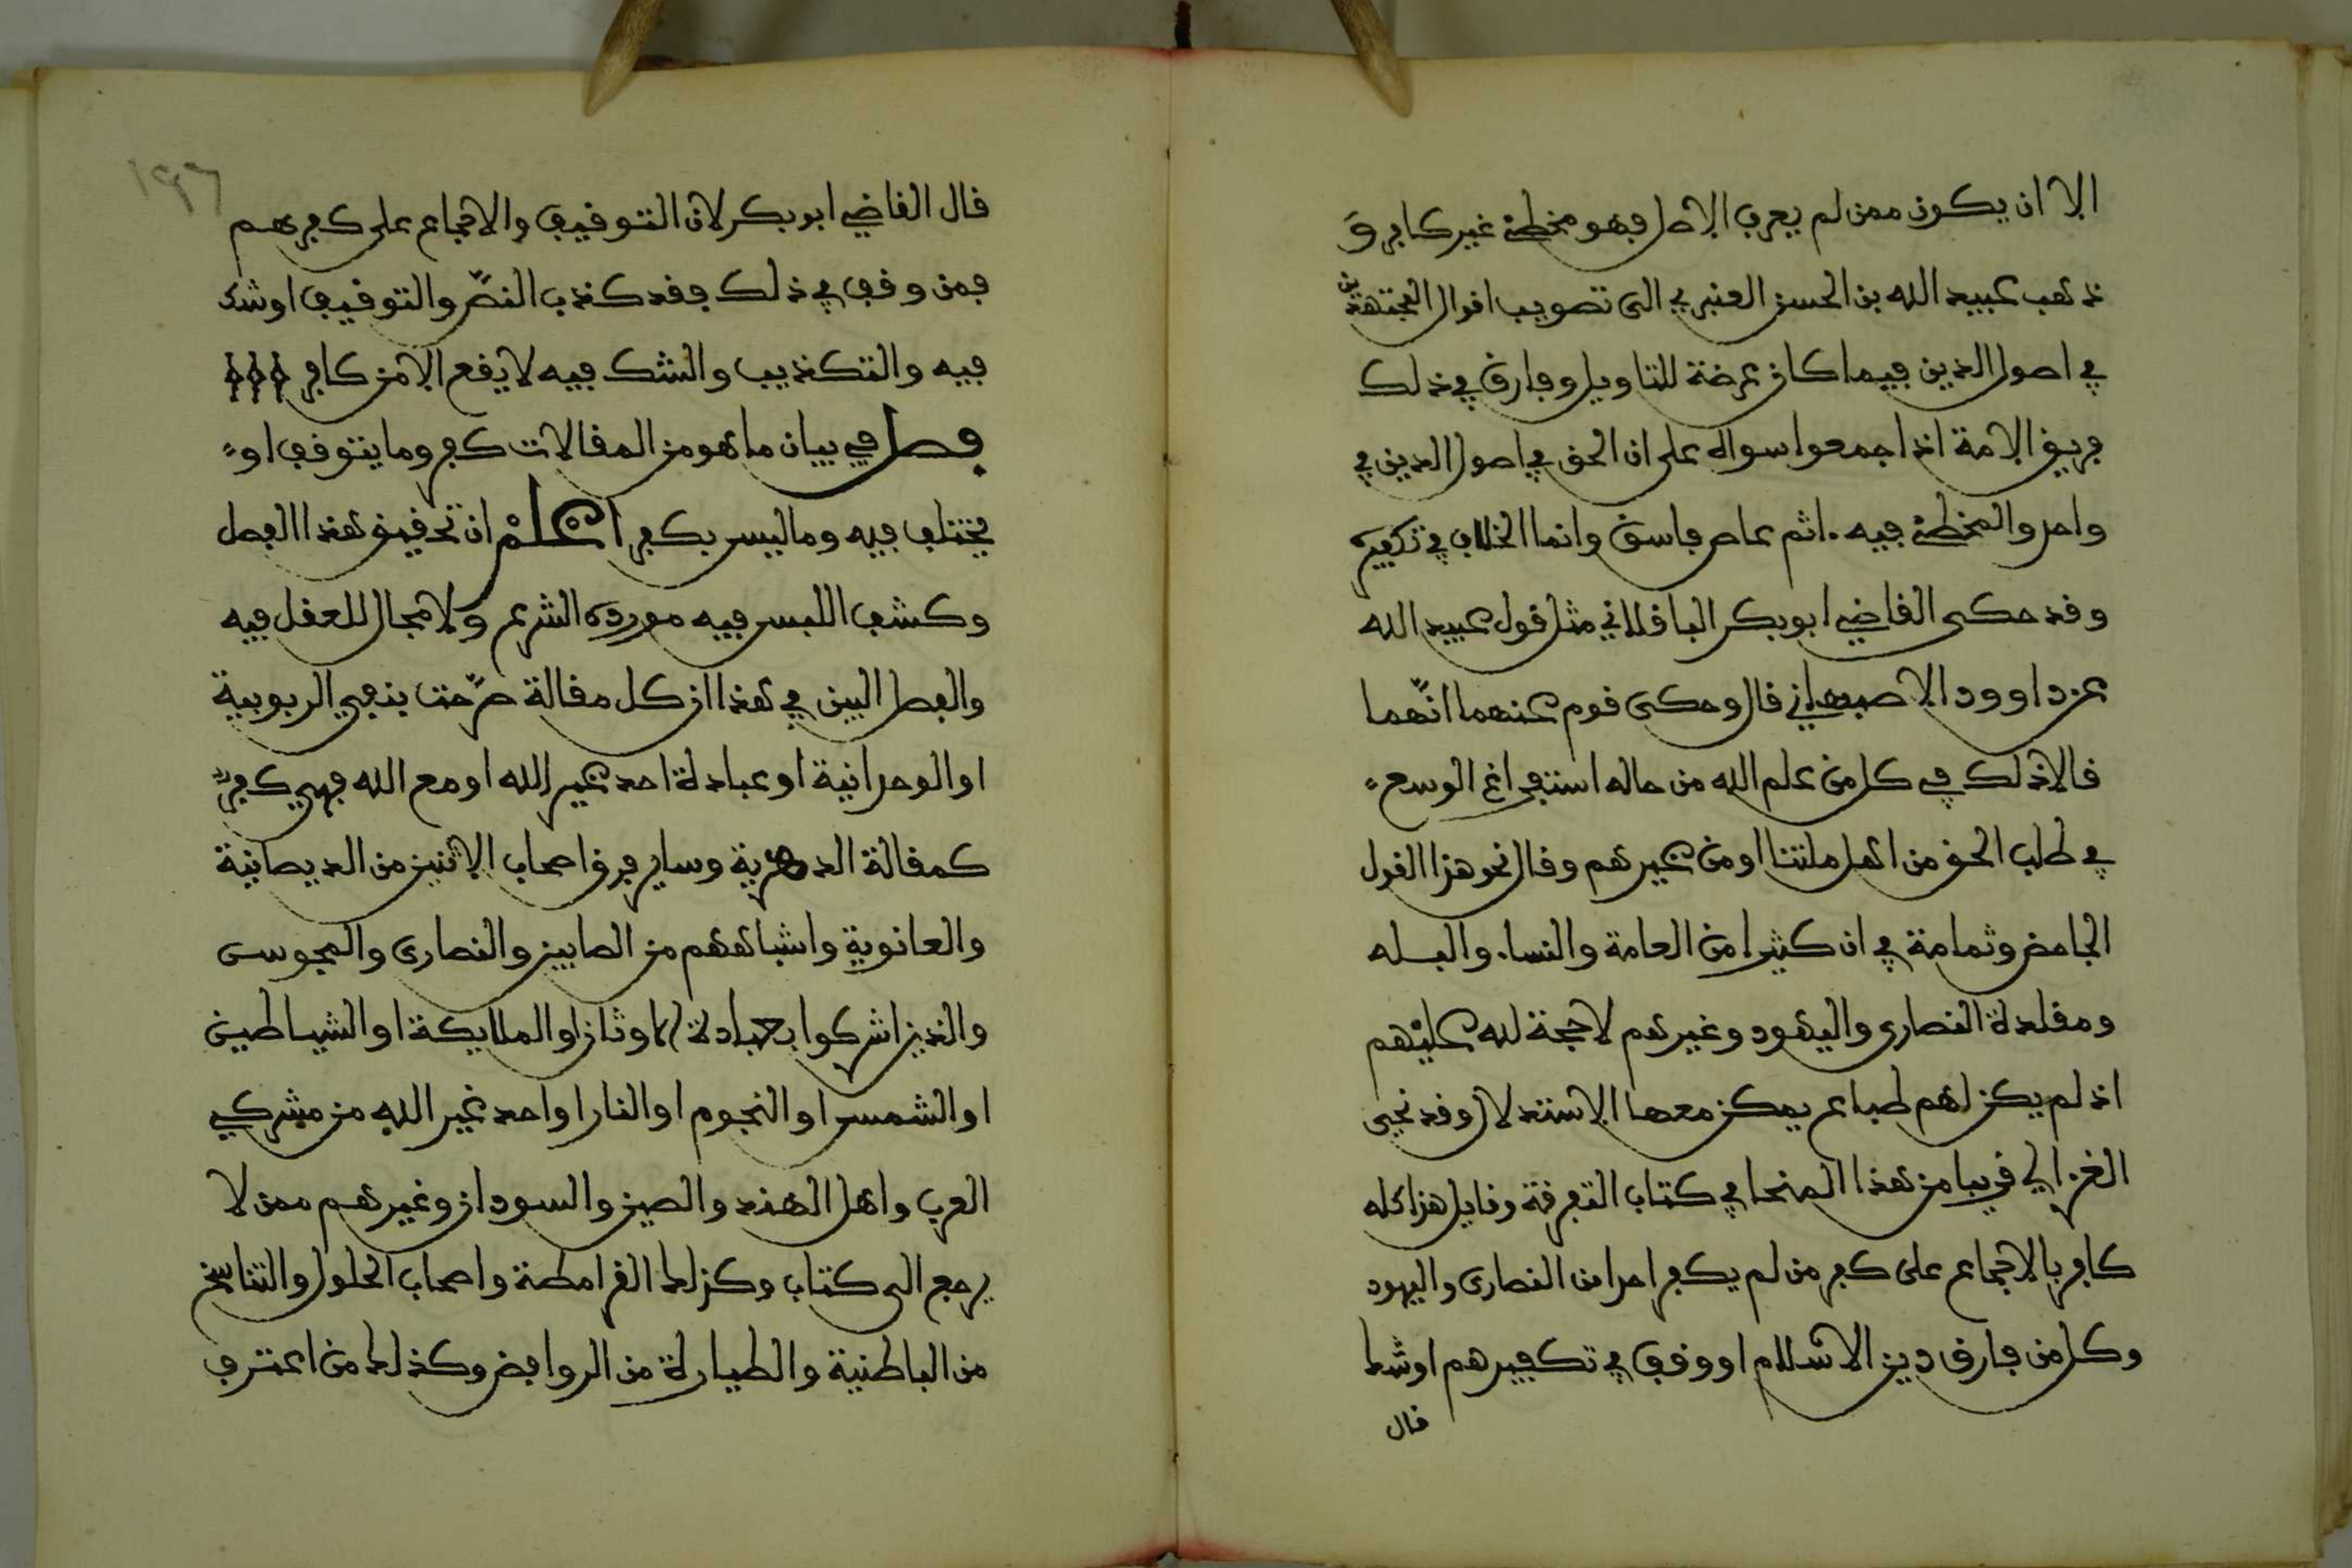 الا ان يكون ممن لم يعرف الاصل فهو مخطئ غير كافر و
ذهب عبيد الله بن الحسن العنبري الى تصويب اقوال المجتهدين
في اصول الدين فيما كان عرضة للتاويل وفارق في ذلك
فريق الامة اذ اجمعوا سواله على ان الحق في اصول الدين في
واحد والمخطئ فيه ءاثم عاص فاسق وانما الخلاف في تكفيره
وقد حكى القاضي ابو بكر الباقلاني مثل قول عبيد الله
عن داوود الاصبهاني قال وحكى قوم عنهما انّهما
قالا ذلك في كل من علم الله من حاله استفراغ الوسع
في طلب الحق من اهل ملتنا او من غيرهم وقال نحو هذا القول
الجاحض وثمامة في ان كثيرا من العامة والنساء والبله
ومقلدة النصارى واليهود وغيرهم لا حجة لله عليهم
اذ لم يكن لهم طباع يمكن معها الاستدلال وقد نحى
الغزالي قريبا من هذا المنحا في كتاب التفرقة وقايل هذا كله
كافر بالاجماع على كفر من لم يكفر احدا من النصارى واليهود
وكل من فارق دين الاسلام او وقف في تكفيرهم او شك
قال
١٩٦
قال القاضي ابو بكر لان التوقيف والاجماع على كفرهم
فمن وقف في ذلك فقد كذب النصّ والتوقيف او شك
فيه والتكذيب والشك فيه لا يقع الا من كافر
فصل في بيان ما هو من المقالات كفر وما يتوقف او
يختلف فيه وما ليس بكفر اعلم ان تحقيق هذا الفصل
وكشف اللبس فيه مورده الشرع ولا مجال للعقل فيه
والفصل البين في هذا ان كل مقالة صرّحت بنفي الربوبية
او الوحدانية او عبادة احد غير الله او مع الله فهي كفر
كمقالة الدهرية وساير فرق اصحاب الاثنين من الديصانية
والمانوية واشباههم من الصابين والنصارى والمجوس
والذين اشركوا بعبادة الاوثان او الملايكة او الشياطين
او الشمس او النجوم او النار او احد غير الله من مشركي
العرب واهل الهند والصين والسودان وغيرهم ممن لا
يرجع الى كتاب وكذلك القرامطة واصحاب الحلول والتناسخ
من الباطنية والطيارة من الروافض وكذلك من اعترف